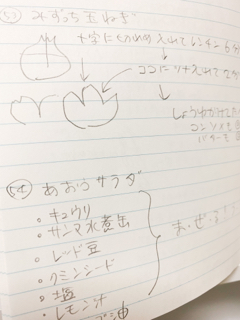 (5) みずっち玉ねぎ
十字に切れめ入れてレンチン6分
ココにツナ入れて2分
しょうゆかけて
コンソメ
バター
(4) あおうサラダ
・キュウリ
・サンマ水煮缶
・レッド豆
・クミンシード
・塩
・レモン汁
まぜる!